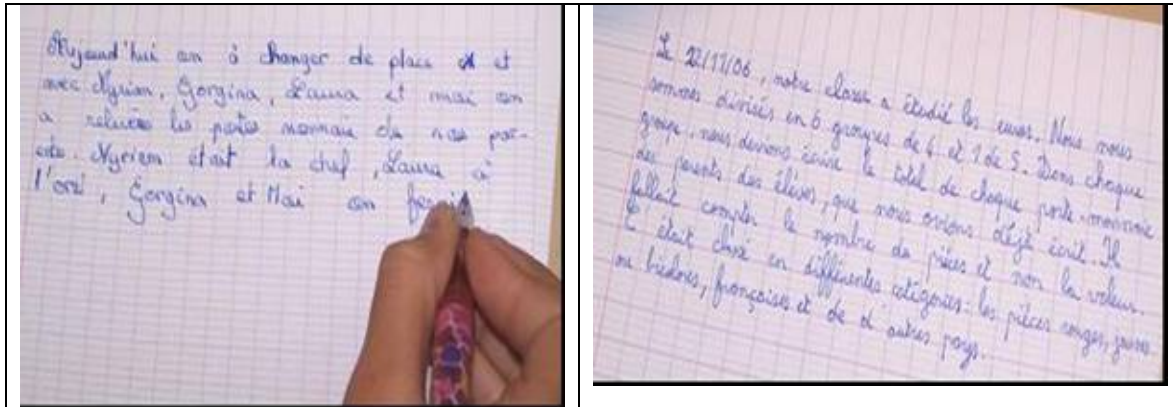 Aujourd'hui on à changer de place et
avec Myriam, Gorgina, Laura et moi on
a relevée les portes monnaie de nos par-
ents. Myriem était la chef, Laura à
l'oral, Gorgina et Moi on
Le 22/11/06, notre classe a étudié les euros. Nous nous
sommes divisés en 6 groupes de 4 et 1 de 5. Dans chaque
groupe, nous devions écrire le total de chaque porte-monnaie
des parents des élèves, que nous avions déjà écrit. Il
fallait compter le nombre de pièces et non la valeur.
C'était classé en différentes catégories: les pièces rouges, jaunes
ou bicolores, françaises et de d'autres pays.